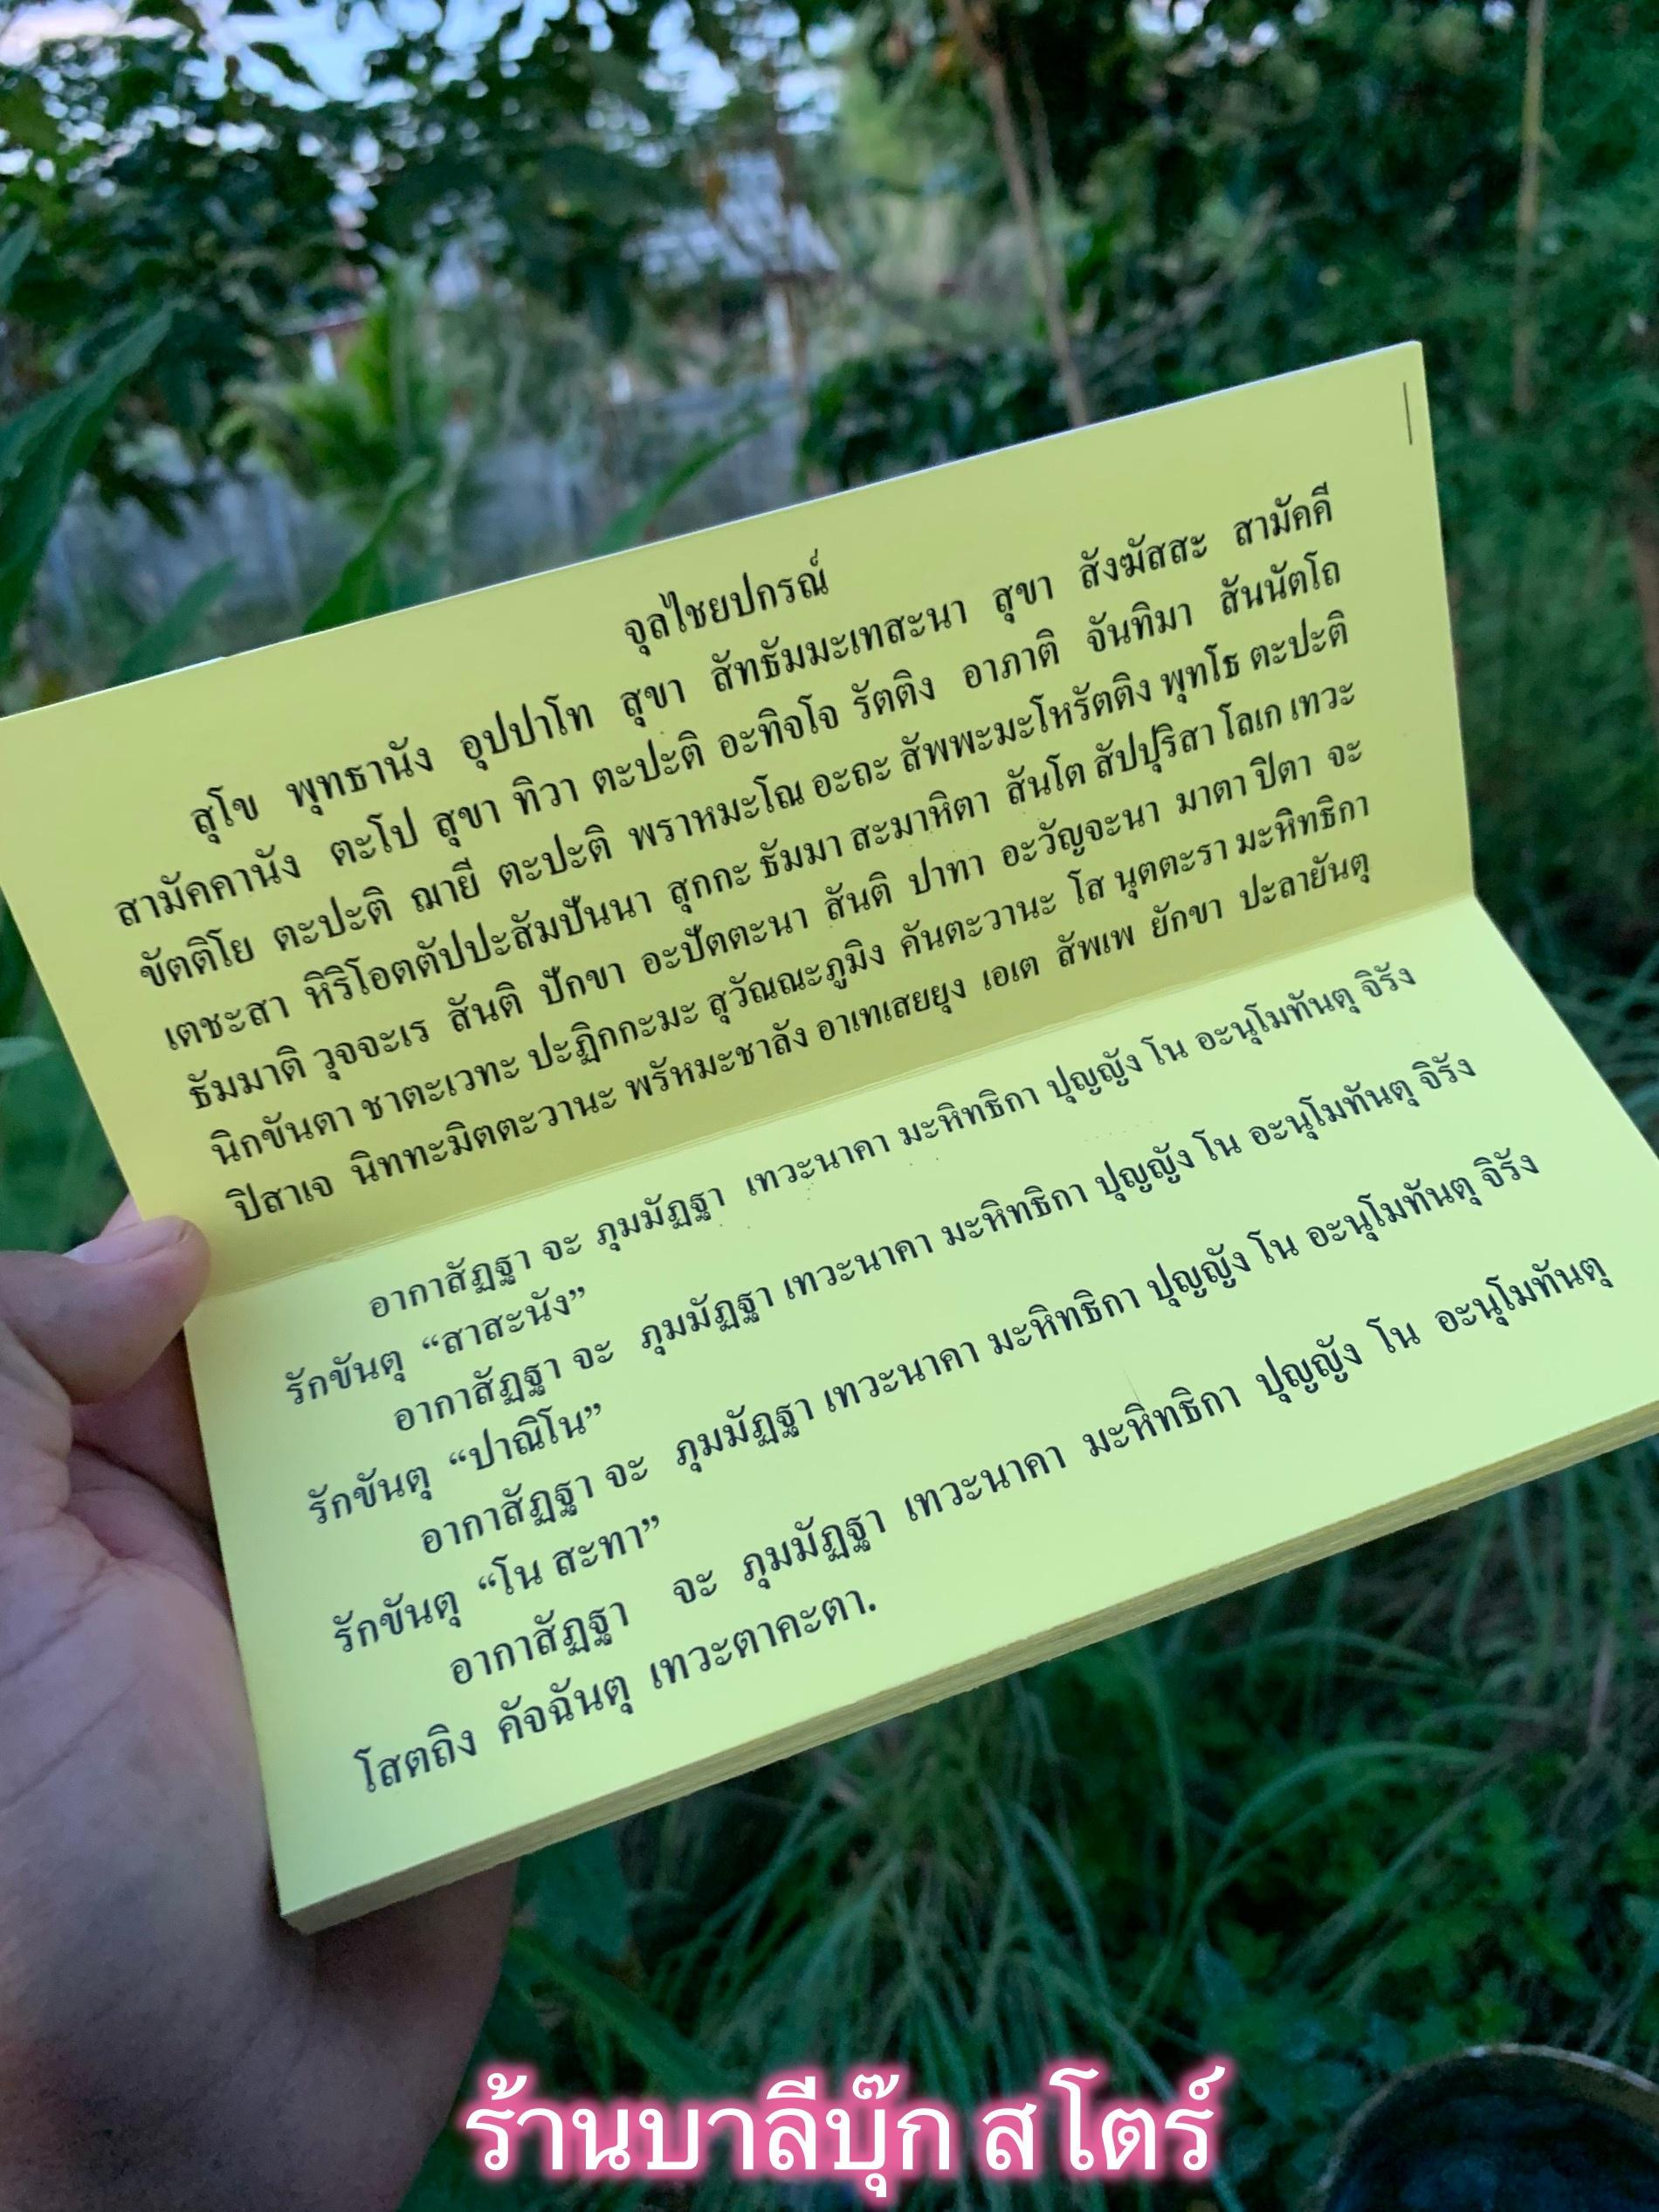 จุลไชยปกรณ์
สุโข พุทธานัง อุปปาโท สุขา สัทธัมมะเทสะนา สุขา สังฆัสสะ สามัคคี
สามัคคานัง ตะโป สุขา ทิวา ตะปะติ อะทิจโจ รัตติง อาภาติ จันทิมา สันนัตโถ
ขัตติโย ตะปะติ ฌายี ตะปะติ พราหมะโณ อะถะ สัพพะมะโหรัตติง พุทโธ ตะปะติ
เตชะสา หิริโอตตัปปะสัมปันนา สุกกะ ธัมมา สะมาหิตา สันโต สัปปุริสา โลเก เทวะ
ธัมมาติ วุจจะเร สันติ ปักขา อะปัตตะนา สันติ ปาทา อะวัญจะนา มาตา ปิตา จะ
นิกขันตา ชาตะเวทะ ปะฏิกกะมะ สุวัณณะภูมิง คันตะวานะ โส นุตตะรา มะหิทธิกา
ปิสาเจ นิททะมิตตะวานะ พรัหมะชาลัง อาเทเสยยุง เอเต สัพเพ ยักขา ปะลายันตุ
อากาสัฏฐา จะ ภุมมัฏฐา เทวะนาคา มะหิทธิกา ปุญญัง โน อะนุโมทันตุ จิรัง
รักขันตุ “สาสะนัง”
อากาสัฏฐา จะ ภุมมัฏฐา เทวะนาคา มะหิทธิกา ปุญญัง โน อะนุโมทันตุ จิรัง
รักขันตุ “ปาณิโน”
อากาสัฏฐา จะ ภุมมัฏฐา เทวะนาคา มะหิทธิกา ปุญญัง โน อะนุโมทันตุ จิรัง
รักขันตุ “โน สะทา”
อากาสัฏฐา จะ ภุมมัฏฐา เทวะนาคา มะหิทธิกา ปุญญัง โน อะนุโมทันตุ
โสตถิง คัจฉันตุ เทวะตาคะตา.
ร้านบาลีบุ๊ก สโตร์